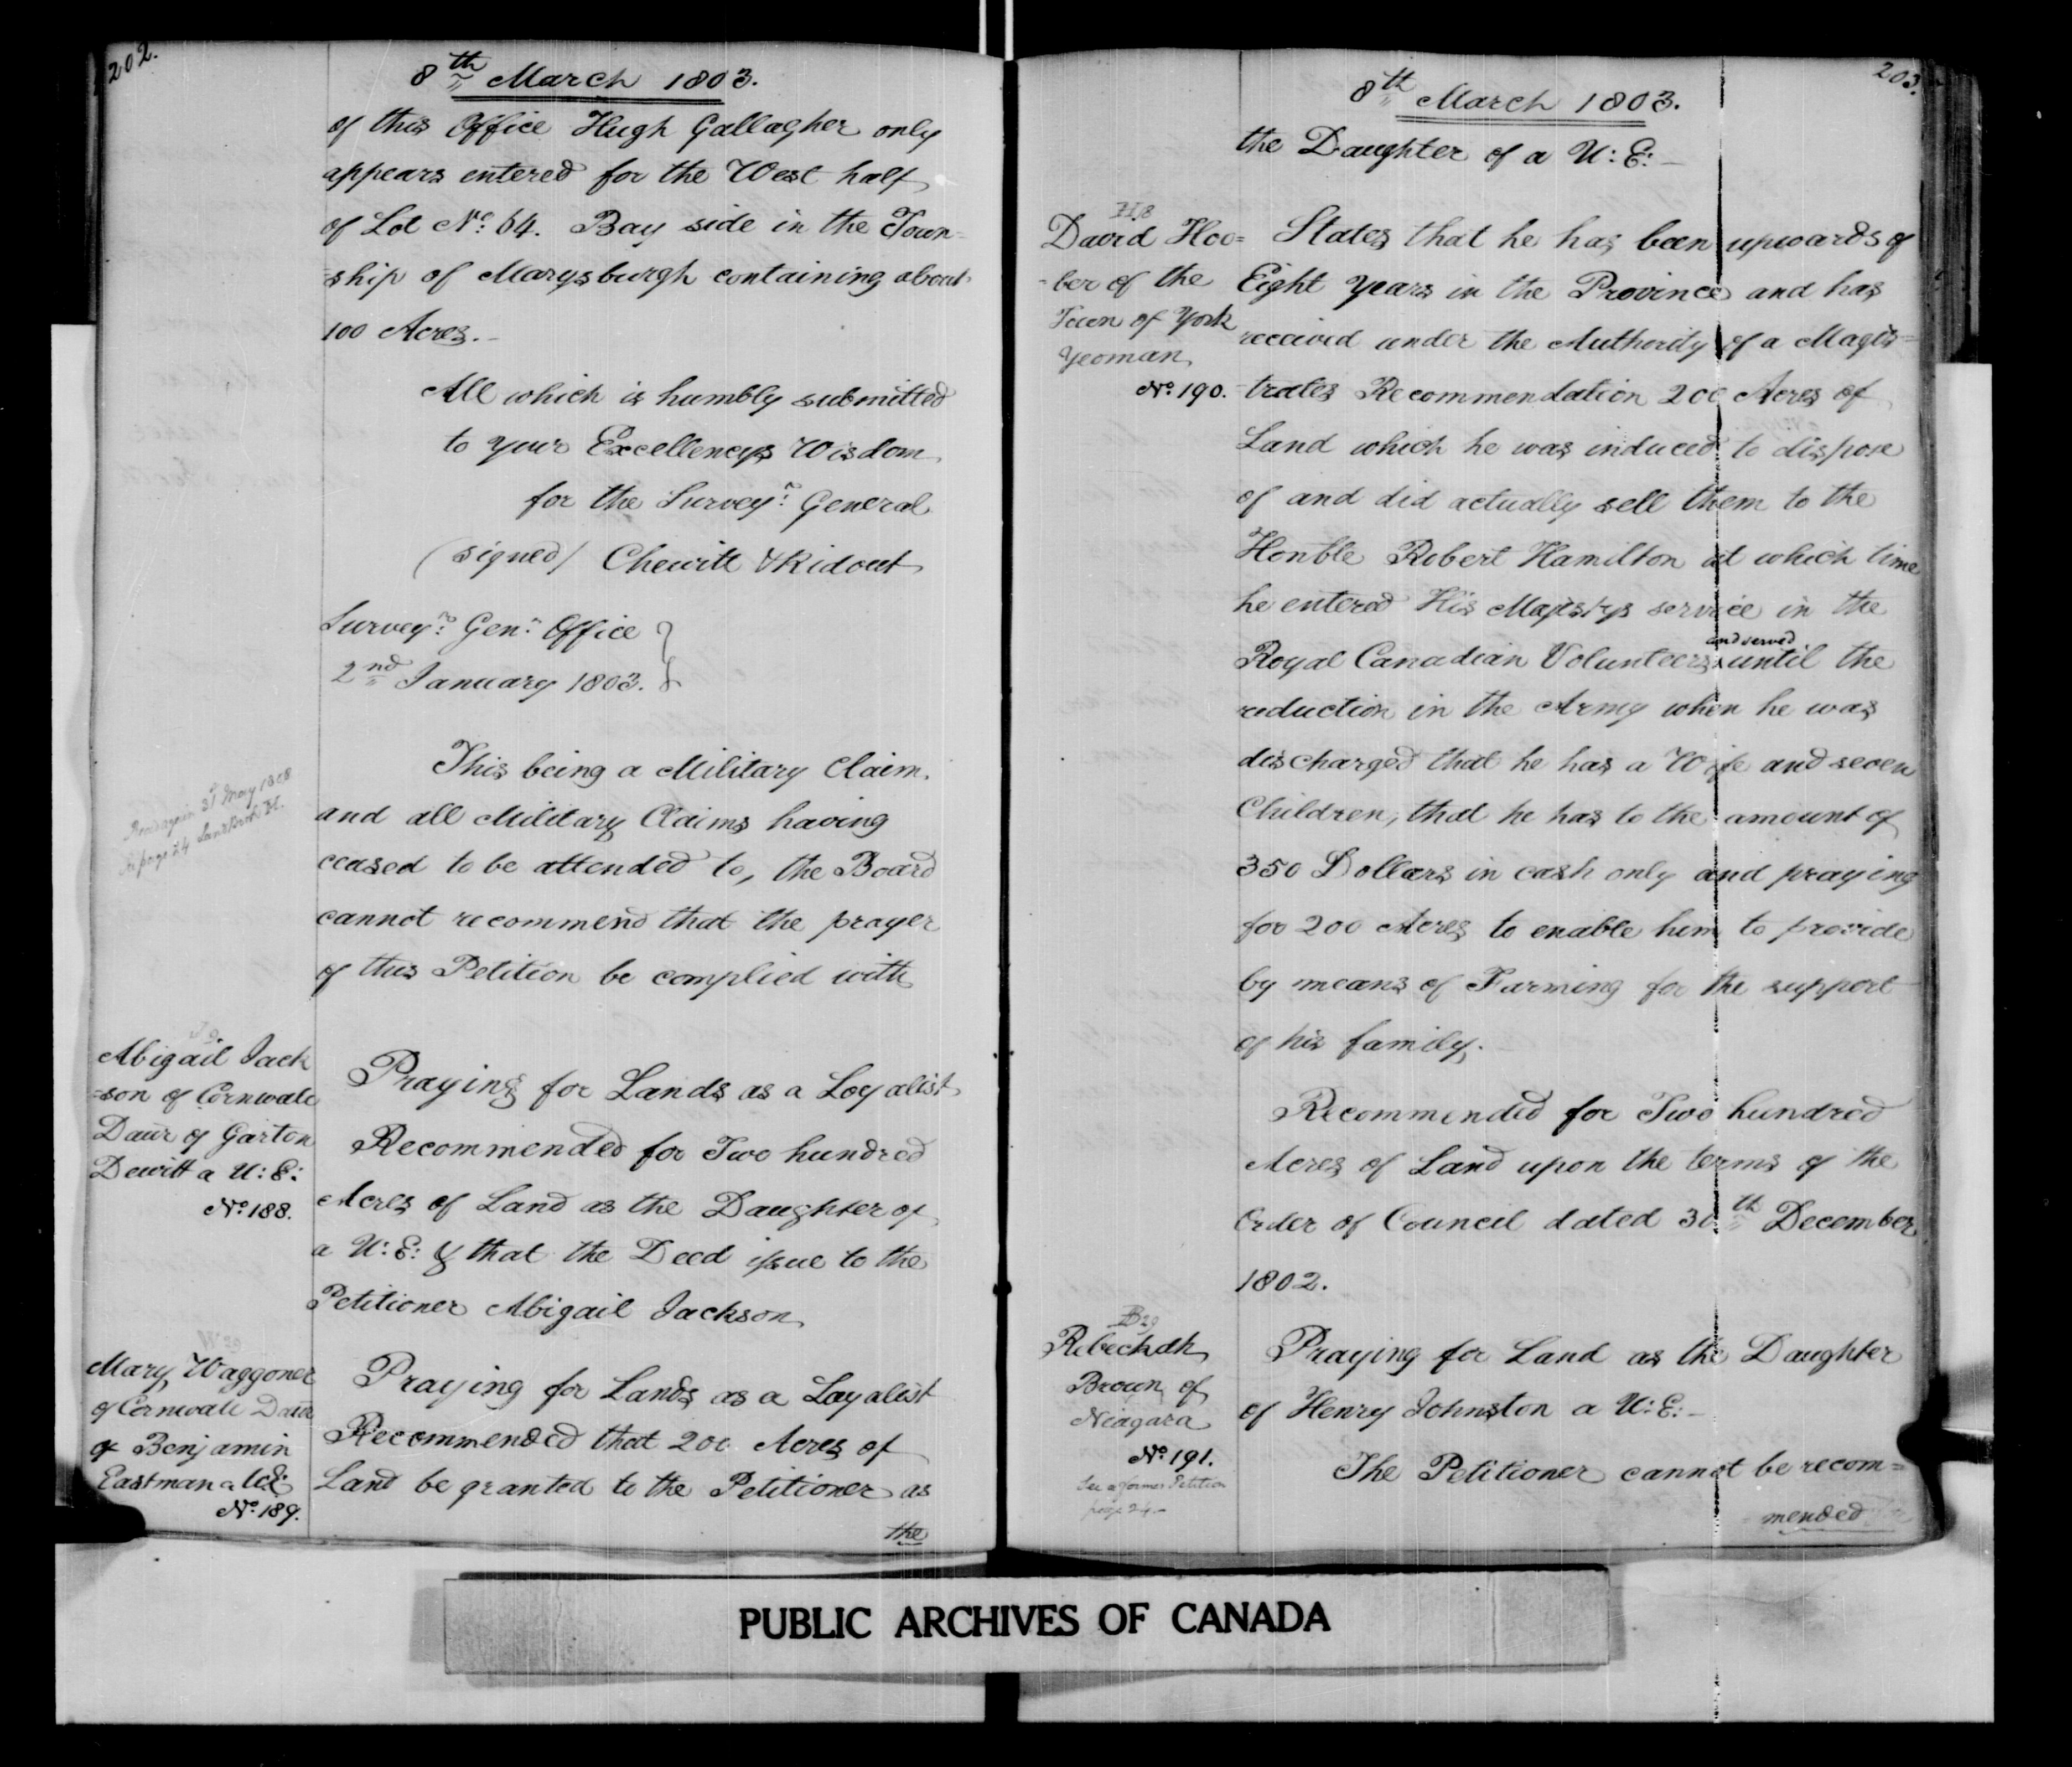 202.
8th March 1803.
of this Office Hugh Gallagher only
appears entered for the West half
of Lot No. 64. Bay side in the Town=
=ship of Marysburgh containing about
100 Acres.-
All which is humbly submitted
to your Excellencys Wisdom
for the Surveyr. General
(signed) Chewitt & Ridout
Surveyr. Genl. Office }
2nd January 1803. }
This being a Military Claim.
and all Military Claims having
ceased to be attended to, the Board
cannot recommend that the prayer
of this Petition be complied with
Read again 31 May 1808
page 24 Land Book H.
Abigail Jack
=son of Cornwall
Daur of Garton
Dewitt a U:E:
No. 188.
Praying for Lands as a Loyalist
Recommended for Two hundred
Acres of Land as the Daughter of
a U:E: & that the Deed issue to the
Petitioner Abigail Jackson
Mary Waggoner
of Cornwall Daur
of Benjamin
Eastman a UE:
No. 189.
Praying for Lands as a Loyalist
Recommended that 200 Acres of
Land be granted to the Petitioner as
the
203.
8th March 1803.
the Daughter of a U:E:-
H/8
David Hoo=
=ber of the
Town of York
Yeoman
No. 190.
States that he has been upwards of
Eight Years in the Province and has
received under the Authority of a Magis=
=trates Recommendation 200 Acres of
Land which he was induced to dispose
of and did actually sell them to the
Honble Robert Hamilton at which time
he entered His Majestys service in the
Royal Canadian Volunteers and served until the
reduction in the Army when he was
discharged that he has a Wife and seven
Children, that he has to the amount of
350 Dollars in cash only and praying
for 200 Acres to enable him to provide
by means of Farming for the support
of his family.
Recommended for Two hundred
Acres of Land upon the terms of the
Order of Council dated 30th December
1802.
B 29
Rebeckah
Brown of
Niagara
No. 191.
See a former Petition
page 24.-
Praying for Land as the Daughter
of Henry Johnston a U:E:-
The Petitioner cannot be recom=
=mended
PUBLIC ARCHIVES OF CANADA